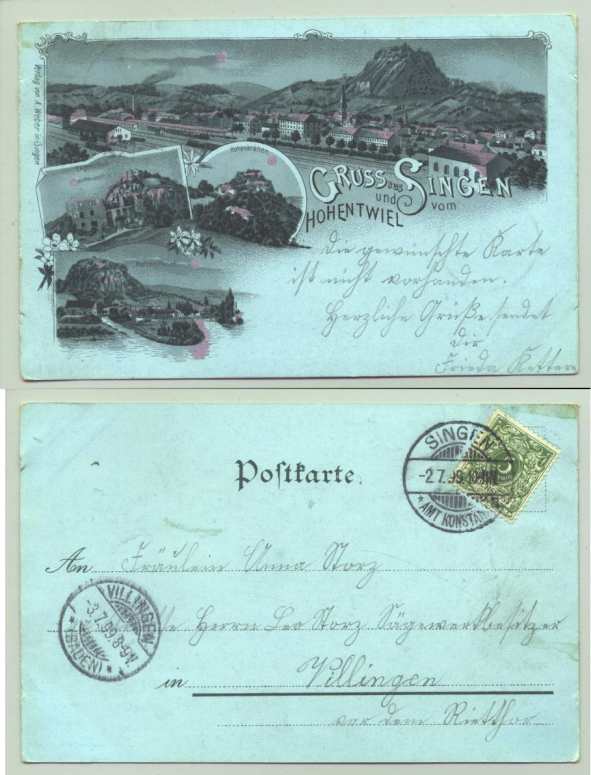 Verlag von A. Weber in Singen
Hohenkrähen
GRUSS aus SINGEN
und vom
HOHENTWIEL
Die gewünschte Karte
ist nicht vorhanden.
Herzliche Grüße sendet
dir
Frieda Ketterer
Postkarte.
SINGEN
-2.7.99.
* AMT KONSTANZ *
An Fräulein Anna Storz
Herrn Leo Storz Sägewerkbesitzer
in Villingen
vor dem Rietthor
VILLINGEN
-3.7.99.8-9V.
* (BADEN) *